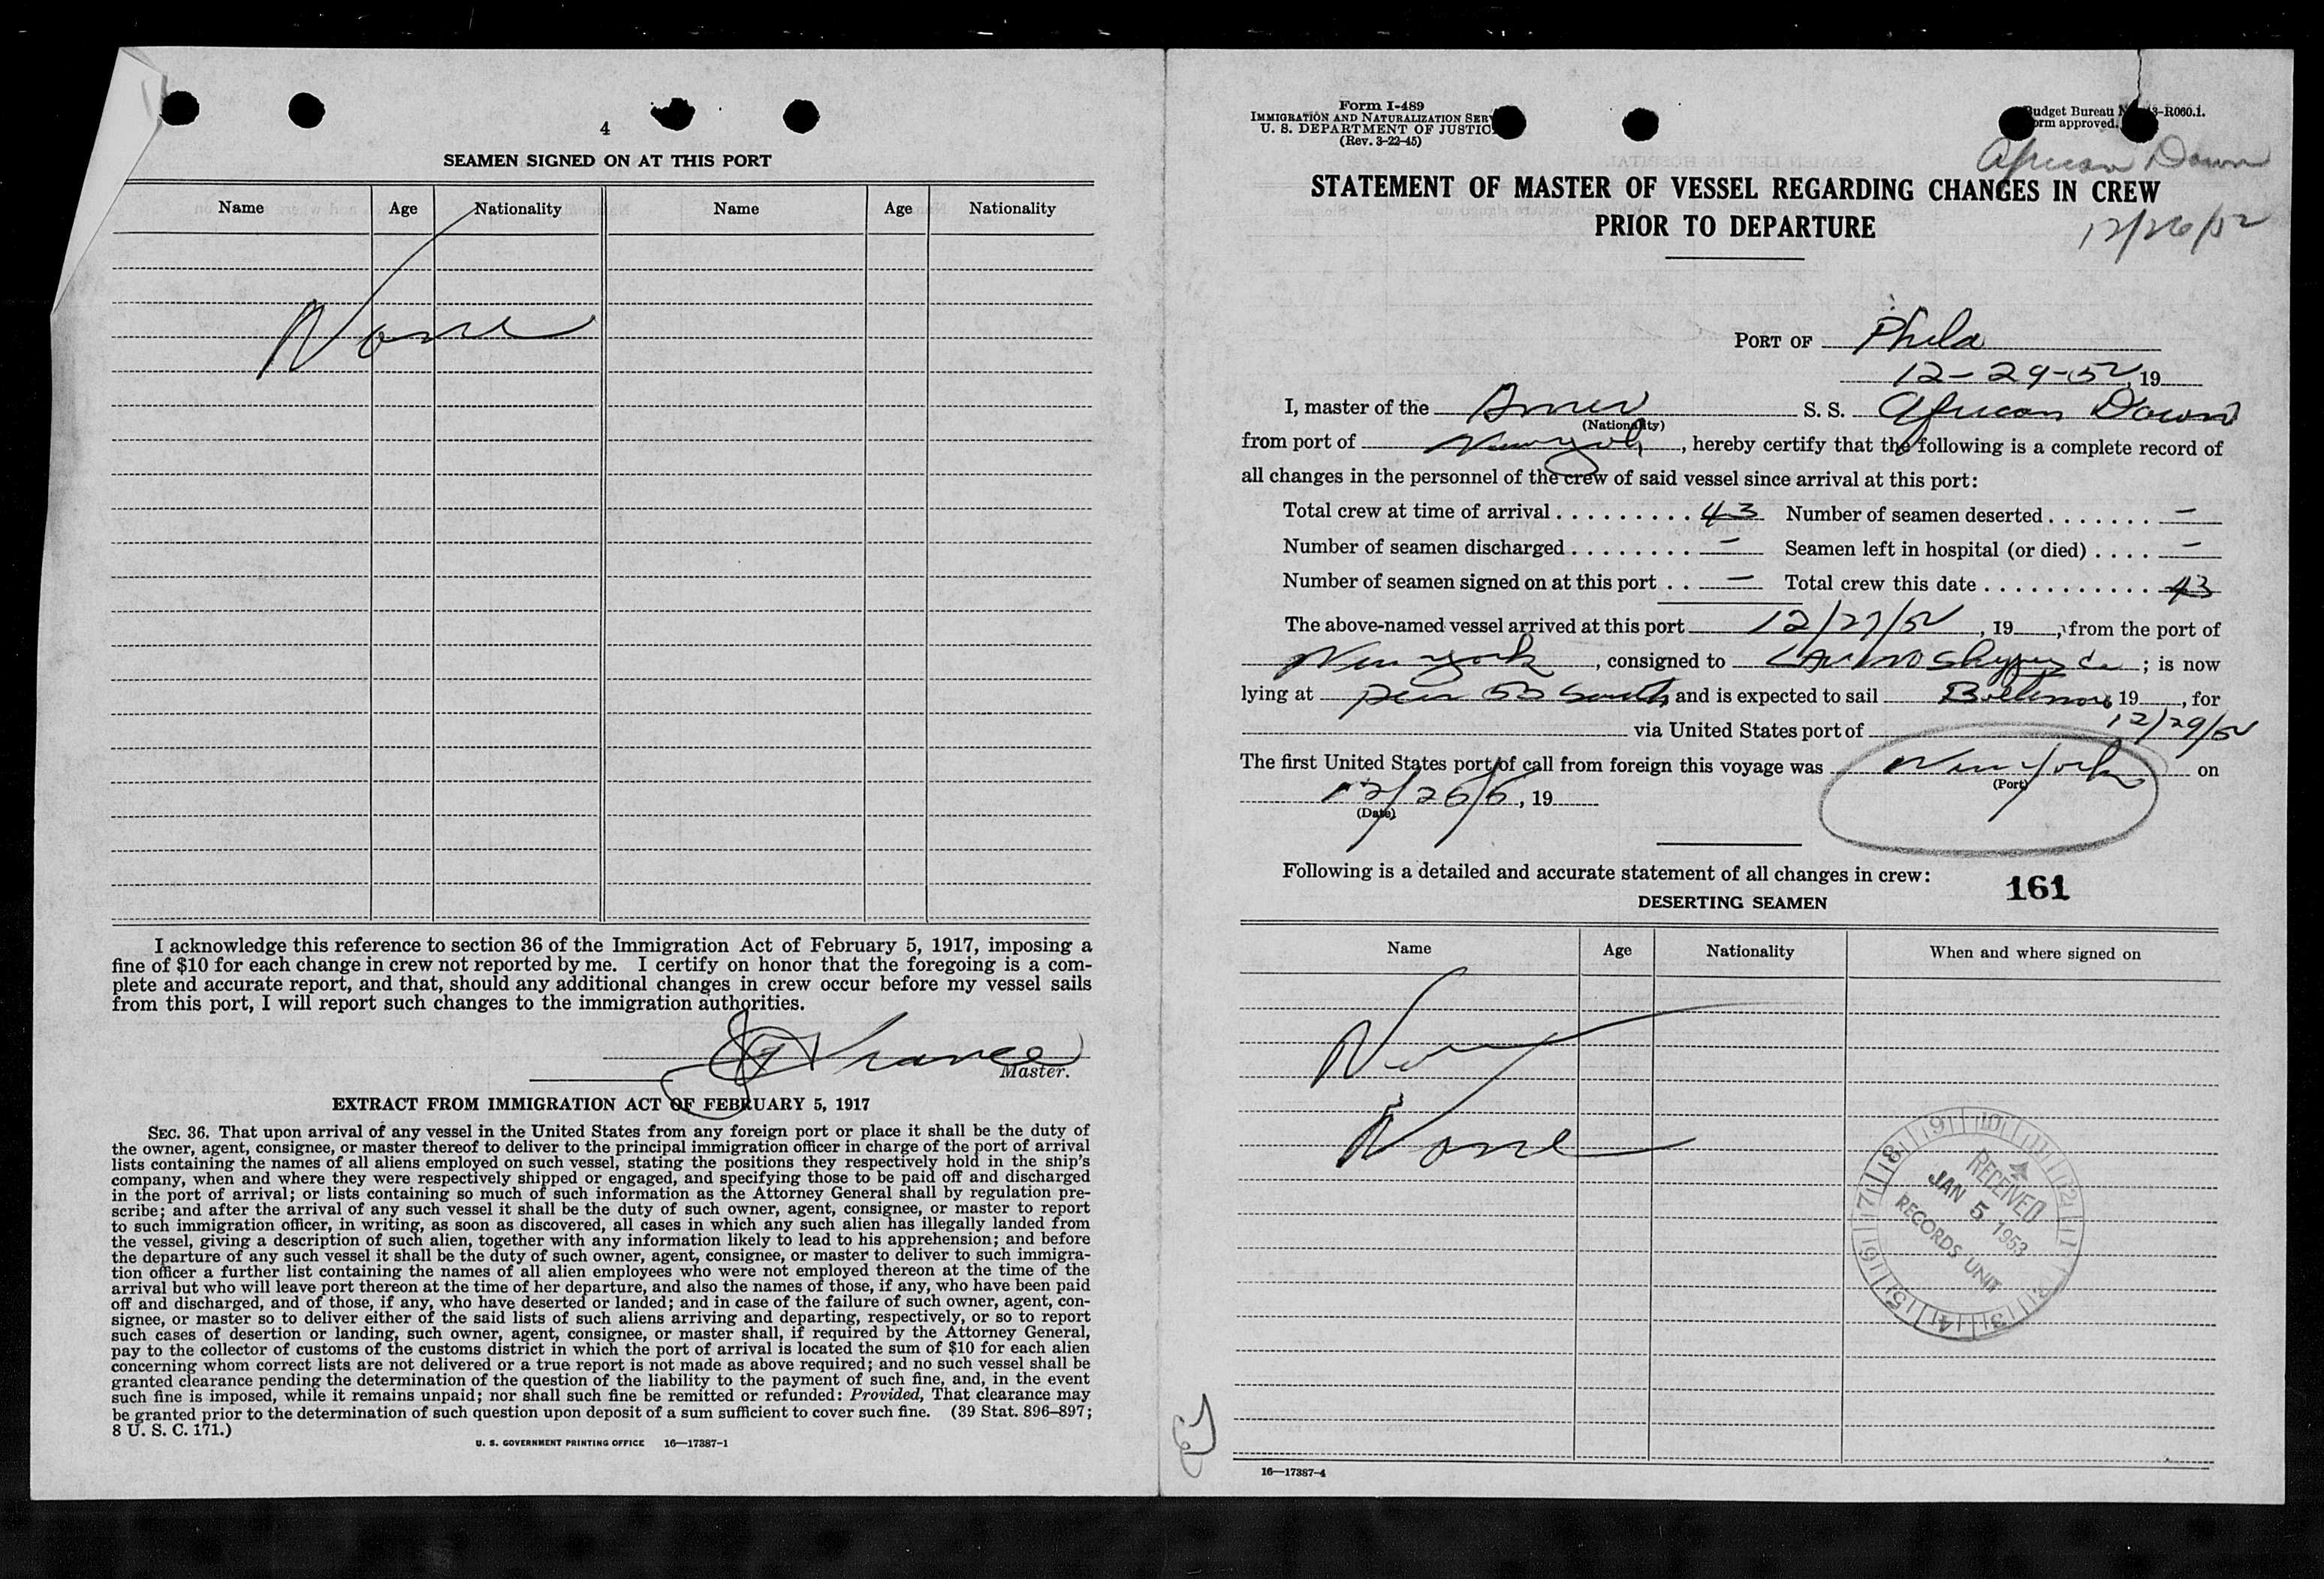 4
SEAMEN SIGNED ON AT THIS PORT
Name Age Nationality Name Age Nationality
None
I acknowledge this reference to section 36 of the Immigration Act of February 5, 1917, imposing a
fine of $10 for each change in crew not reported by me. I certify on honor that the foregoing is a com-
plete and accurate report, and that, should any additional changes in crew occur before my vessel sails
from this port, I will report such changes to the immigration authorities.
Master.
EXTRACT FROM IMMIGRATION ACT OF FEBRUARY 5, 1917
SEC. 36. That upon arrival of any vessel in the United States from any foreign port or place it shall be the duty of
the owner, agent, consignee, or master thereof to deliver to the principal immigration officer in charge of the port of arrival
lists containing the names of all aliens employed on such vessel, stating the positions they respectively hold in the ship's
company, when and where they were respectively shipped or engaged, and specifying those to be paid off and discharged
in the port of arrival; or lists containing so much of such information as the Attorney General shall by regulation pre-
scribe; and after the arrival of any such vessel it shall be the duty of such owner, agent, consignee, or master to report
to such immigration officer, in writing, as soon as discovered, all cases in which any such alien has illegally landed from
the vessel, giving a description of such alien, together with any information likely to lead to his apprehension; and before
the departure of any such vessel it shall be the duty of such owner, agent, consignee, or master to deliver to such immigra-
tion officer a further list containing the names of all alien employees who were not employed thereon at the time of the
arrival but who will leave port thereon at the time of her departure, and also the names of those, if any, who have been paid
off and discharged, and of those, if any, who have deserted or landed; and in case of the failure of such owner, agent, con-
signee, or master so to deliver either of the said lists of such aliens arriving and departing, respectively, or so to report
such cases of desertion or landing, such owner, agent, consignee, or master shall, if required by the Attorney General,
pay to the collector of customs of the customs district in which the port of arrival is located the sum of $10 for each alien
concerning whom correct lists are not delivered or a true report is not made as above required; and no such vessel shall be
granted clearance pending the determination of the question of the liability to the payment of such fine, and, in the event
such fine is imposed, while it remains unpaid; nor shall such fine be remitted or refunded: Provided, That clearance may
be granted prior to the determination of such question upon deposit of a sum sufficient to cover such fine. (39 Stat. 896–897;
8 U. S. C. 171.)
U. S. GOVERNMENT PRINTING OFFICE 16—17387-1
Form I-489
IMMIGRATION AND NATURALIZATION SER
U. S. DEPARTMENT OF JUSTIC
(Rev. 3-22-45)
Budget Bureau N 3-R060.1.
orm approved.
African Dawn
STATEMENT OF MASTER OF VESSEL REGARDING CHANGES IN CREW
PRIOR TO DEPARTURE
12/26/52
PORT OF Phila
12-29-52, 19
I, master of the Amer S. S. African Dawn
(Nationality)
from port of New York, hereby certify that the following is a complete record of
all changes in the personnel of the crew of said vessel since arrival at this port:
Total crew at time of arrival 43 Number of seamen deserted —
Number of seamen discharged — Seamen left in hospital (or died) —
Number of seamen signed on at this port — Total crew this date 43
The above-named vessel arrived at this port 12/27/52, 19, from the port of
New York, consigned to Shipping Co ; is now
lying at pier 53 South and is expected to sail Baltimore 19, for
12/29/52
via United States port of
The first United States port of call from foreign this voyage was New York on
(Port)
12/26/5, 19
(Date)
Following is a detailed and accurate statement of all changes in crew:
161
DESERTING SEAMEN
Name Age Nationality When and where signed on
None
RECEIVED
JAN 5 1953
RECORDS UNIT
16—17387-4